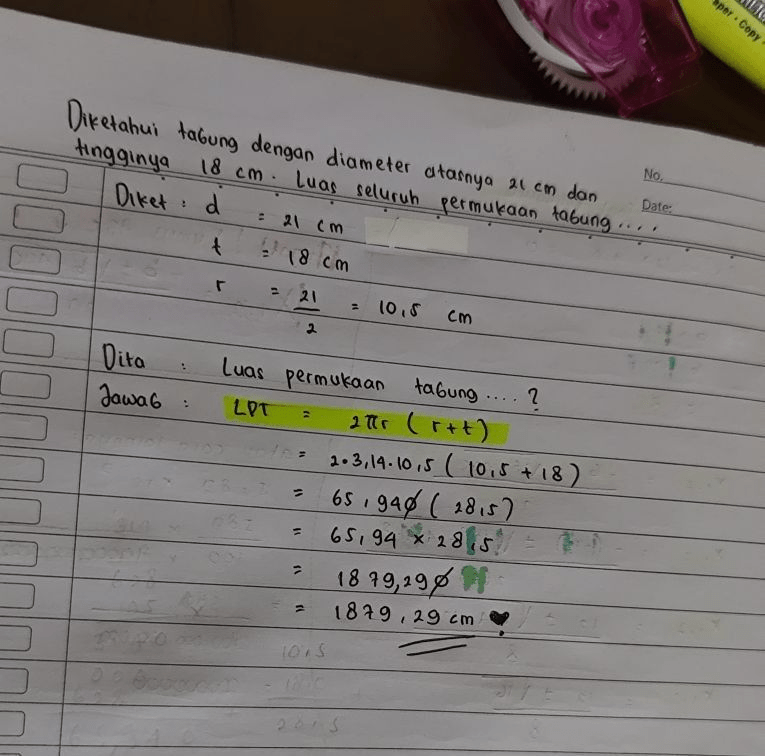 Diketahui tabung dengan diameter atasnya 21 cm dan
tingginya 18 cm. Luas seluruh permukaan tabung....
No.
Date:
Diket : d = 21 cm
t = 18 cm
r = 21/2 = 10,5 cm
Dita : Luas permukaan tabung .... ?
Jawab : LPT = 2πr ( r+t )
= 2.3,14.10,5 ( 10,5 + 18 )
= 65,940 ( 28,5 )
= 65,94 × 28,5
= 1879,290
= 1879,29 cm
10,5